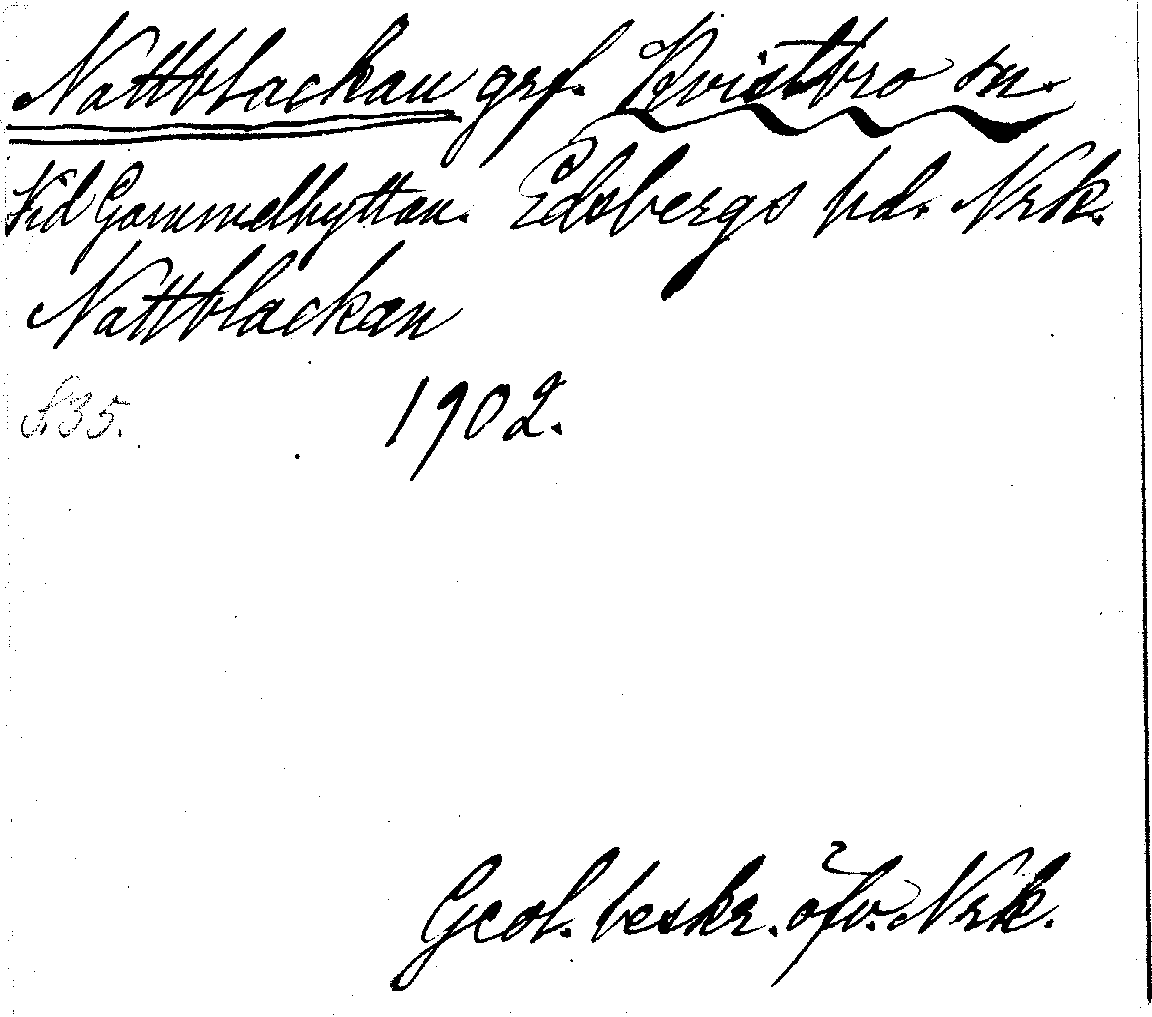 Nattblackan grf. Kvistbro sn.
Vid Gammelhyttan. Edsbergs hd. Nrk.
Nattblackan
S.35. 1902.
Geol. beskr. öfv. Nrk.